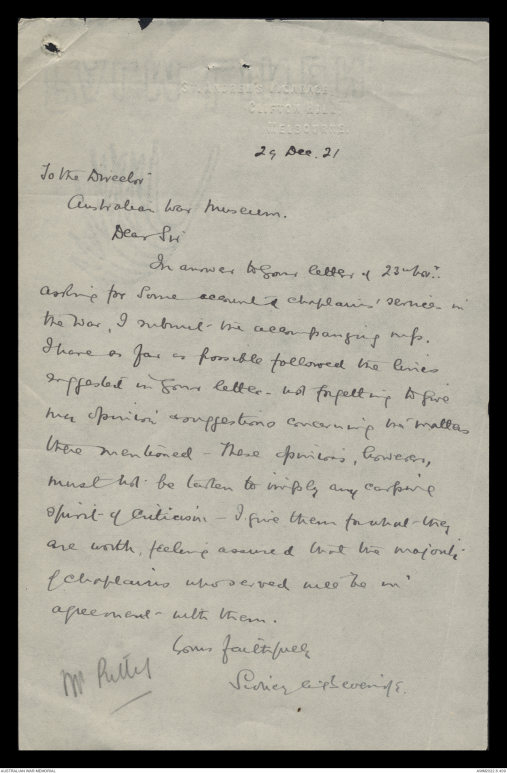 ST. ANDREW'S VICARAGE
CLIFTON HILL
MELBOURNE.
29 Dec. 21
To the Director
Australian War Museum.
Dear Sir
In answer to your letter of 23rd Nov.
asking for some account of chaplains' services in
the war, I submit the accompanying mss.
I have as far as possible followed the lines
suggested in your letter - not forgetting to give
my opinion & suggestions concerning the matters
there mentioned - These opinions, however,
must not be taken to imply any carping
spirit of criticism - I give them for what they
are worth, feeling assured that the majority
of chaplains who served will be in
agreement with them.
Yours faithfully
Sidney
Mr
AUSTRALIAN WAR MEMORIAL